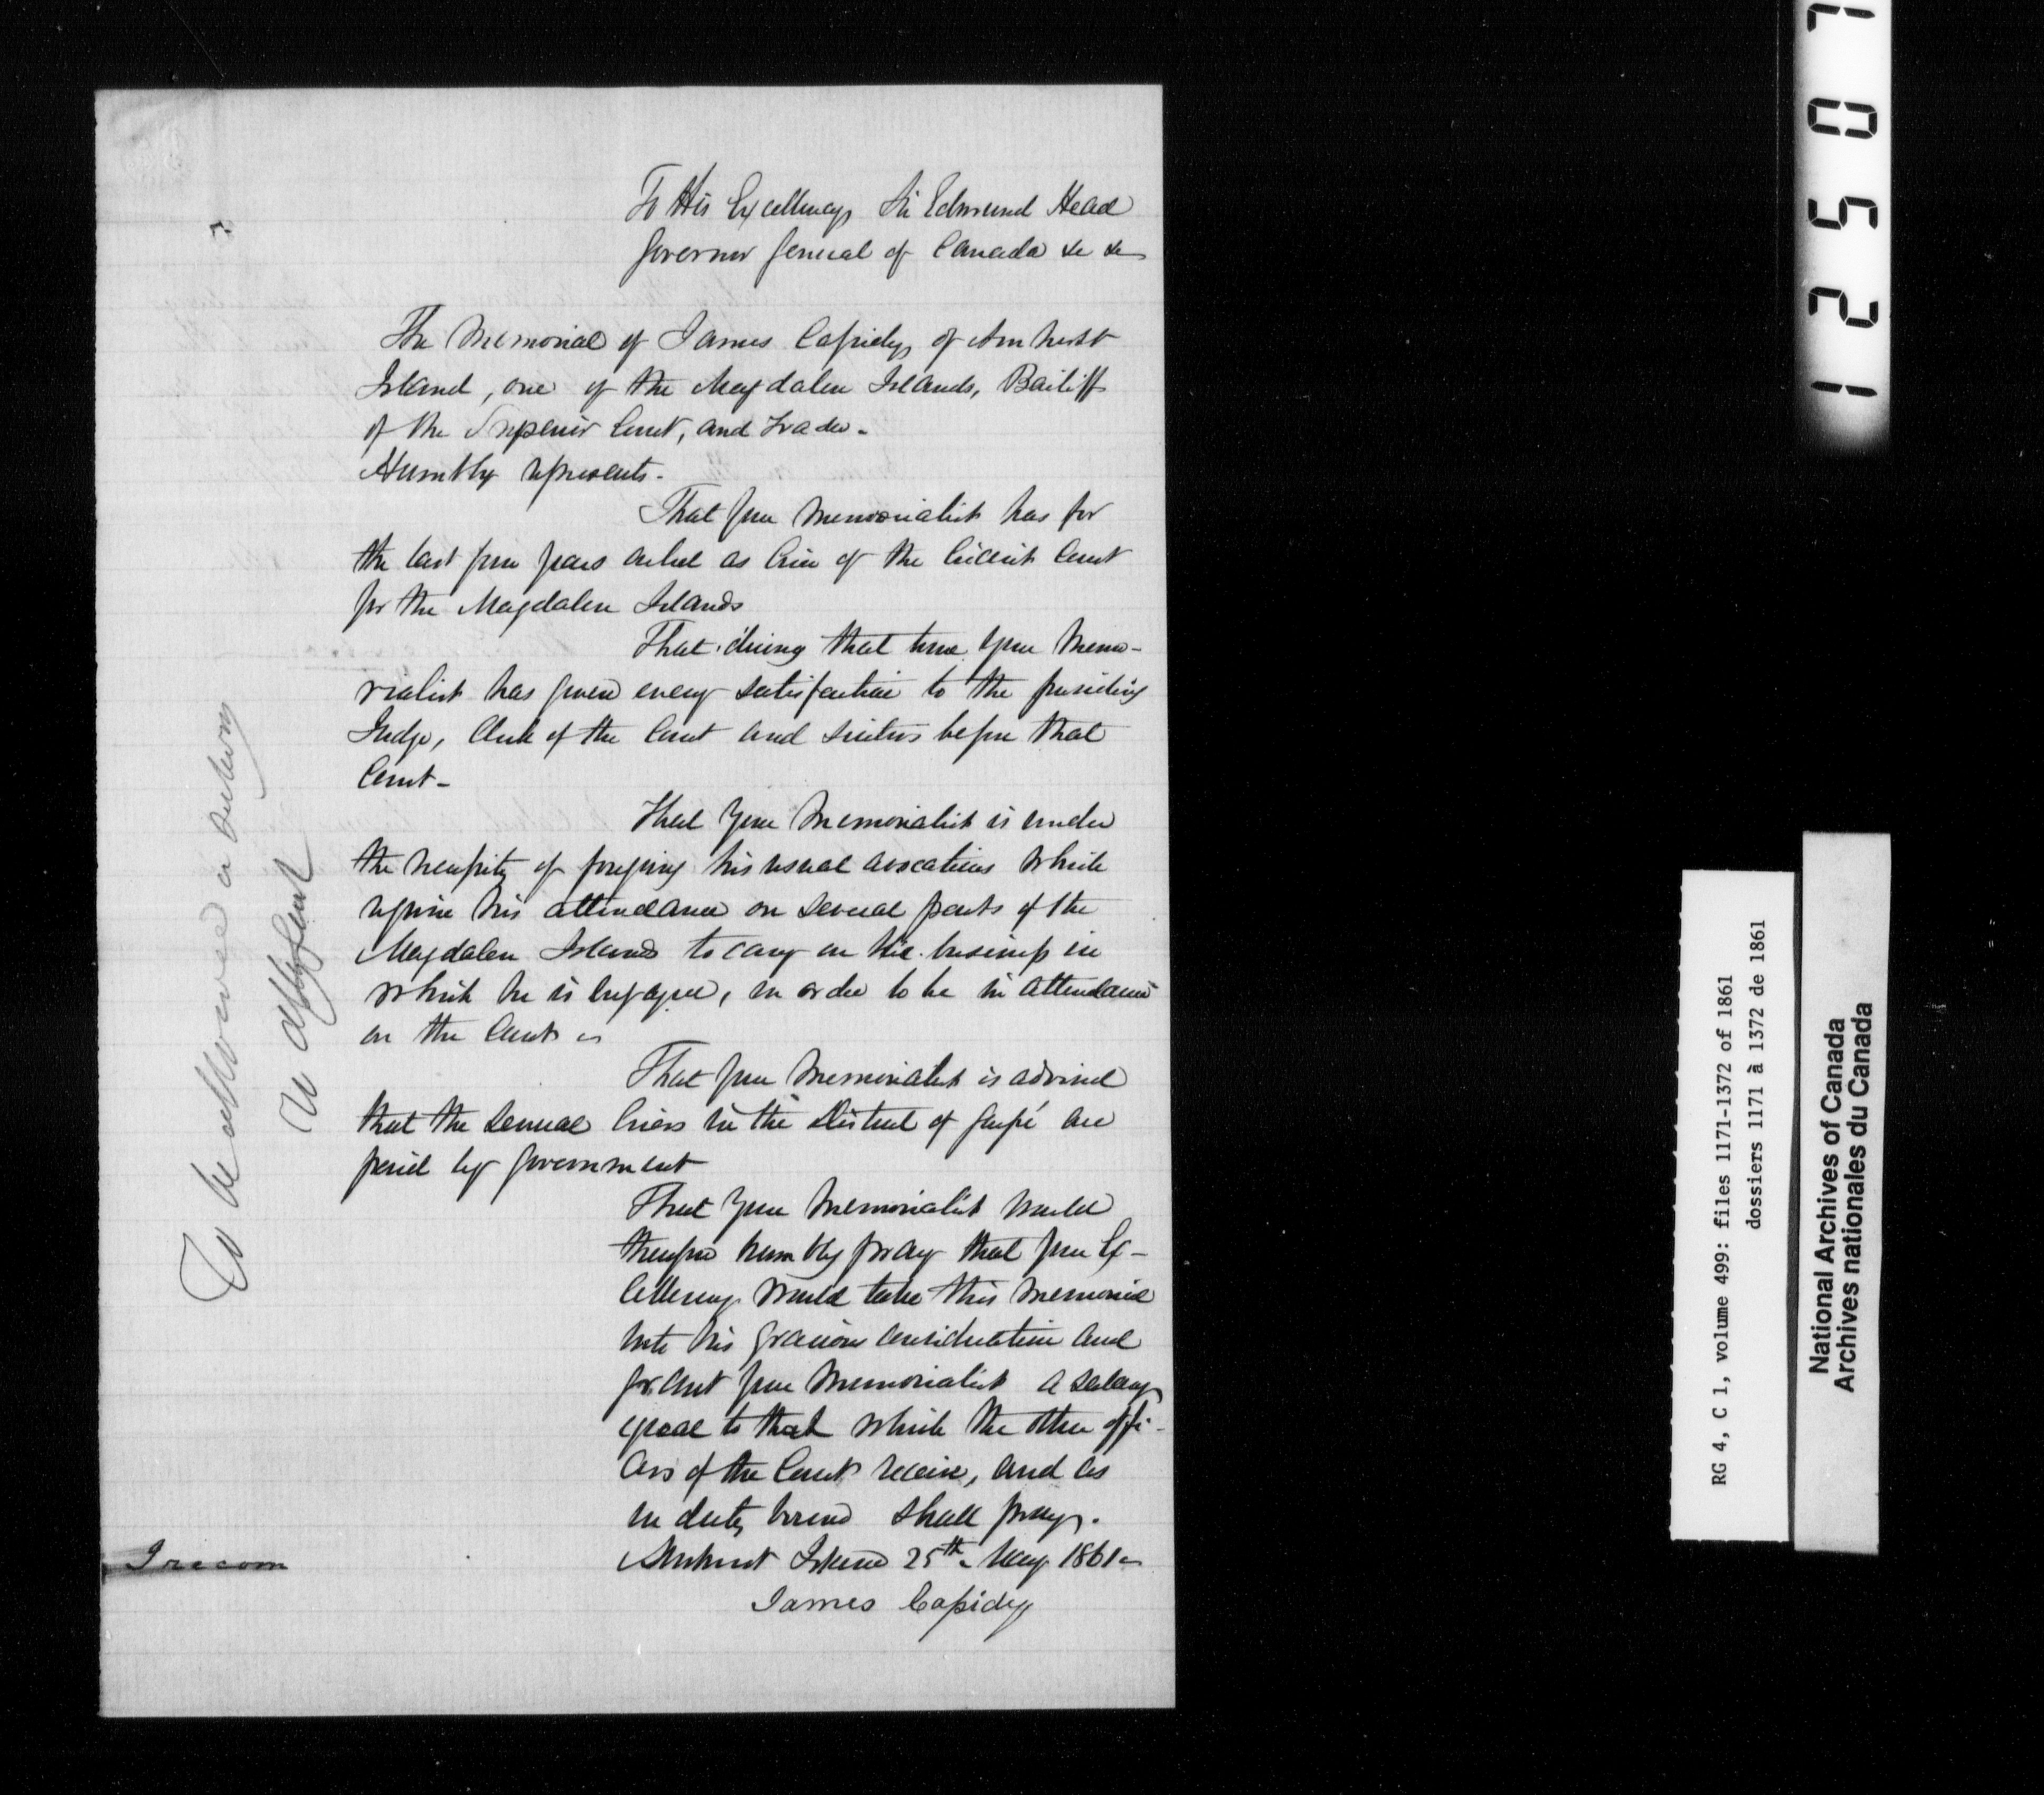 To His Excellency Sir Edmund Head
Governor General of Canada &c &c
The Memorial of James Cassidy, of Amherst
Island, one of the Magdalen Islands, Bailiff
of the Superior Court, and Trader.
Humbly represents.
That your Memorialist has for
the last four years acted as Crier of the Circuit Court
for the Magdalen Islands
That during that time your Memo-
rialist has given every satisfaction to the presiding
Judge, Clerk of the Court and suitors before that
Court-
That your Memorialist is under
the necessity of foregoing his usual avocations which
require his attendance on several parts of the
Magdalen Islands to carry on the business in
which he is engaged, in order to be in attendance
on the Court
That your Memorialist is advised
that the several Criers in the District of Gaspé are
paid by Government
That your Memorialist would
therefore humbly pray that your Ex-
cellency would take this memorial
into his gracious consideration and
grant your Memorialist a salary
equal to that which the other offi-
cers of the Court receive, and as
in duty bound shall pray.
Amherst Island 25th May 1861
James Cassidy
To be allowed a
I recom
12507
RG 4, C 1, volume 499: files 1171-1372 of 1861
dossiers 1171 à 1372 de 1861
National Archives of Canada
Archives nationales du Canada